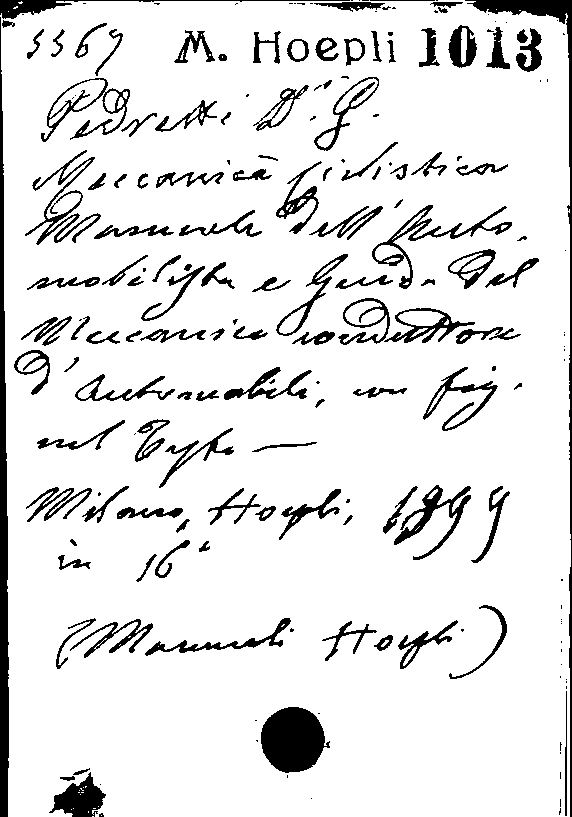 5567 M. Hoepli 1013
Pedretti Dr. G.
Meccanica
Manuale dell'Auto-
mobilista e Guida del
Meccanico conduttore
d'Automobili, con fig.
nel Testo —
Milano, Hoepli, 1899
in 16°
(Manuali Hoepli)